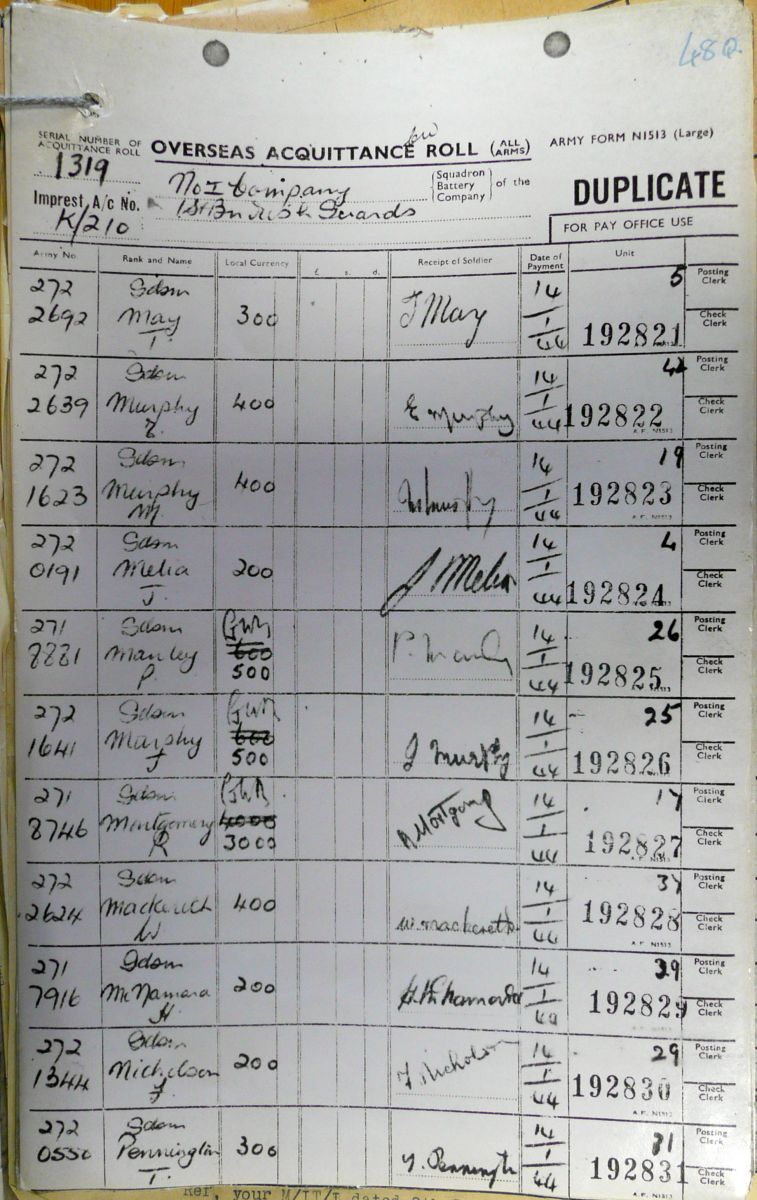 48Q.
SERIAL NUMBER OF
ACQUITTANCE ROLL
1319
OVERSEAS ACQUITTANCE ROLL (ALL ARMS)
ARMY FORM N1513 (Large)
Imprest A/c No.
K/210
No I Company
Squadron
Battery
Company
of the
1st Bn Irish Guards
DUPLICATE
FOR PAY OFFICE USE
Army No. Rank and Name Local Currency £ s. d. Receipt of Soldier Date of Payment Unit Posting Clerk
272 Gdsm 14 5
2692 May 300 J May 1 Check Clerk
T. 44 192821
272 Gdsm 14 42 Posting Clerk
2639 Murphy 400 E Murphy 1 Check Clerk
E. 44 192822
A.F. N1513
272 Gdsm 14 19 Posting Clerk
1623 Murphy 400 1 192823 Check Clerk
M 44
A.F. N1513
272 Gdsm 14 4 Posting Clerk
0191 Melia 200 J Melia 1 Check Clerk
J. 44 192824
271 Gdsm 14 26 Posting Clerk
8881 Manley 600 P. Manley 1 Check Clerk
P. 500 44 192825
272 Gdsm 14 25 Posting Clerk
1641 Murphy 600 J Murphy 1 Check Clerk
J 500 44 192826
271 Gdsm 14 17 Posting Clerk
8746 Montgomery 4000 R Montgomery 1 Check Clerk
R 3000 44 192827
272 Gdsm 14 37 Posting Clerk
2624 Mackereth 400 W Mackereth 1 192828 Check Clerk
W 44
A.F. N1513
271 Gdsm 14 39 Posting Clerk
7916 McNamara 200 H McNamara 1 192829 Check Clerk
H. 44
272 Gdsm 14 29 Posting Clerk
1344 Nicholson 200 J Nicholson 1 192830 Check Clerk
J. 44
A.F. N1513
272 Gdsm 14 31 Posting Clerk
0550 Pennington 300 T. Pennington 1 192831 Check Clerk
T. 44
Ref, your M/IT/I dated